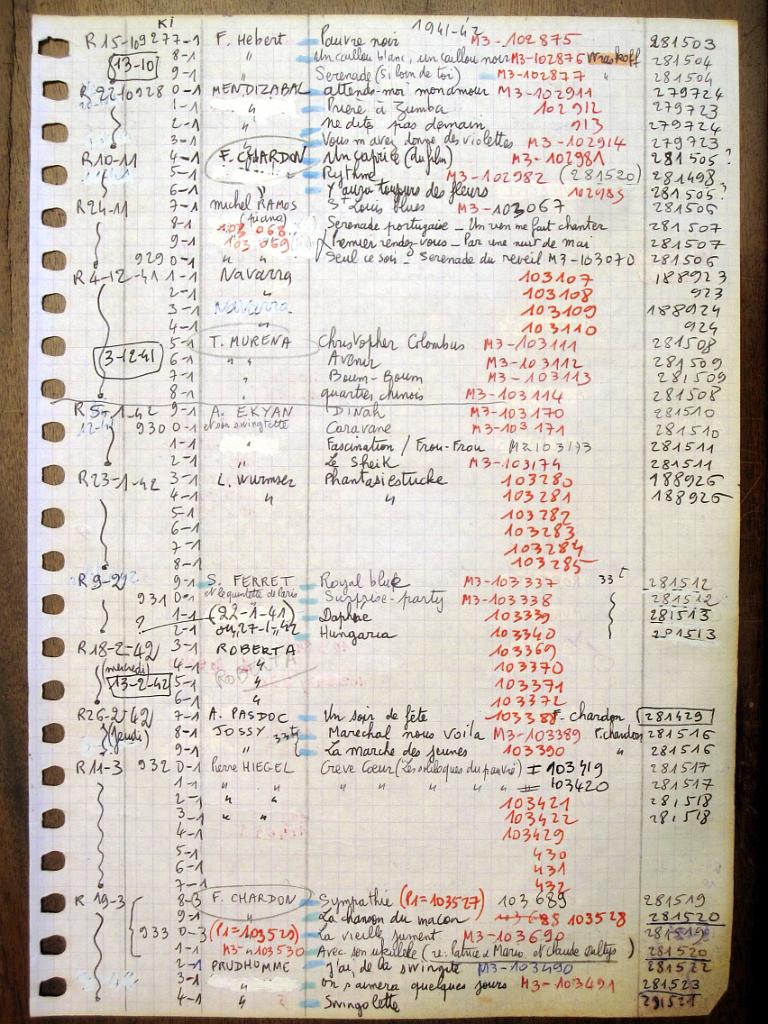 Ki 1941-42
R 15-10 9277-1 F. Hebert Pauvre noir M3-102875 281503
13-10 8-1 " Un caillou blanc, un caillou noir M3-102876 Wraskoff 281504
9-1 " Serenade (si loin de toi) M3-102877 " 281504
R 22-10 928 0-1 MENDIZABAL attends-moi mon amour M3-102911 279724
1-1 " Prière à Zumba 102912 279723
2-1 " ne dites pas demain 913 279724
3-1 " Vous m'avez donné des violettes M3-102914 279723
R 10-11 4-1 F. CHARDON Un caprice (du film) M3-102981 281505?
5-1 " Rythme M3-102982 (281520) 281498
6-1 " Y aura toujours des fleurs 102983 281505?
R 24-11 7-1 michel RAMOS St Louis blues M3-103067 281506
8-1 (piano) 103068 Serenade portugaise _ Un rien me fait chanter 281507
9-1 103069 Premier rendez-vous _ Par une nuit de mai 281507
929 0-1 " " Seul ce soir _ Serenade du reveil M3-103070 281506
R 4-12-41 1-1 Navarra 103107 188923
2-1 " 103108 923
3-1 Navarra 103109 188924
4-1 " 103110 924
5-1 T. MURENA Christopher Colombus M3-103111 281508
3-12-41 6-1 " " Avenir M3-103112 281509
7-1 " Boum-Boum M3-103113 281509
8-1 " quartier chinois M3-103114 281508
R 5-1-42 9-1 A. EKYAN DINAH M3-103170 281510
930 0-1 et son swingtette Caravane M3-103171 281510
1-1 " Fascination / Frou-Frou M3 103173 281511
2-1 " Le Sheik M3-103174 281511
R 23-1-42 3-1 L. Wurmser Phantasiestucke 103280 188926
4-1 " " 103281 188926
5-1 103282
6-1 103283
7-1 103284
8-1 103285
R 9-2 9-1 S. FERRET Royal blue M3-103337 33t 281512
931 0-1 et le quintette de Paris Surprise-party M3-103338 281512
1-1 (22-1-41) Daphné 103339 281513
? 2-1 ou 27-1-42 Hungaria 103340 281513
R 18-2-42 3-1 ROBERTA 103369
(mercredi) 4-1 " 103370
13-2-42 5-1 " 103371
6-1 " 103372
R 26-2-42 7-1 A. PASDOC Un soir de fête 103388 F. chardon 281429
(jeudi) 8-1 JOSSY 33t Marechal nous voila M3-103389 F. chardon 281516
9-1 " La marche des jeunes 103390 " 281516
R 11-3 932 0-1 Pierre HIEGEL Creve Cœur (Les soliloques du pauvre) I 103419 281517
1-1 " " " " " " " II 103420 281517
2-1 " " 103421 281518
3-1 " " 103422 281518
4-1 103429
5-1 430
6-1 431
7-1 432
R 19-3 8-3 F. CHARDON Sympathie (P1=103527) 103689 281519
9-1 " La chanson du macon 103688 103528 281520
933 0-3 (P1=103529) La vieille jument M3-103690 281519
1-1 M3-103530 Avec son ukulélé (re: Patrice et Mario et Claude 281520
2-1 PRUDHOMME j'ai de la swingite M3-103490 281522
3-1 " on s'aimera quelques jours M3-103491 281523
4-1 " Swingolette 281521